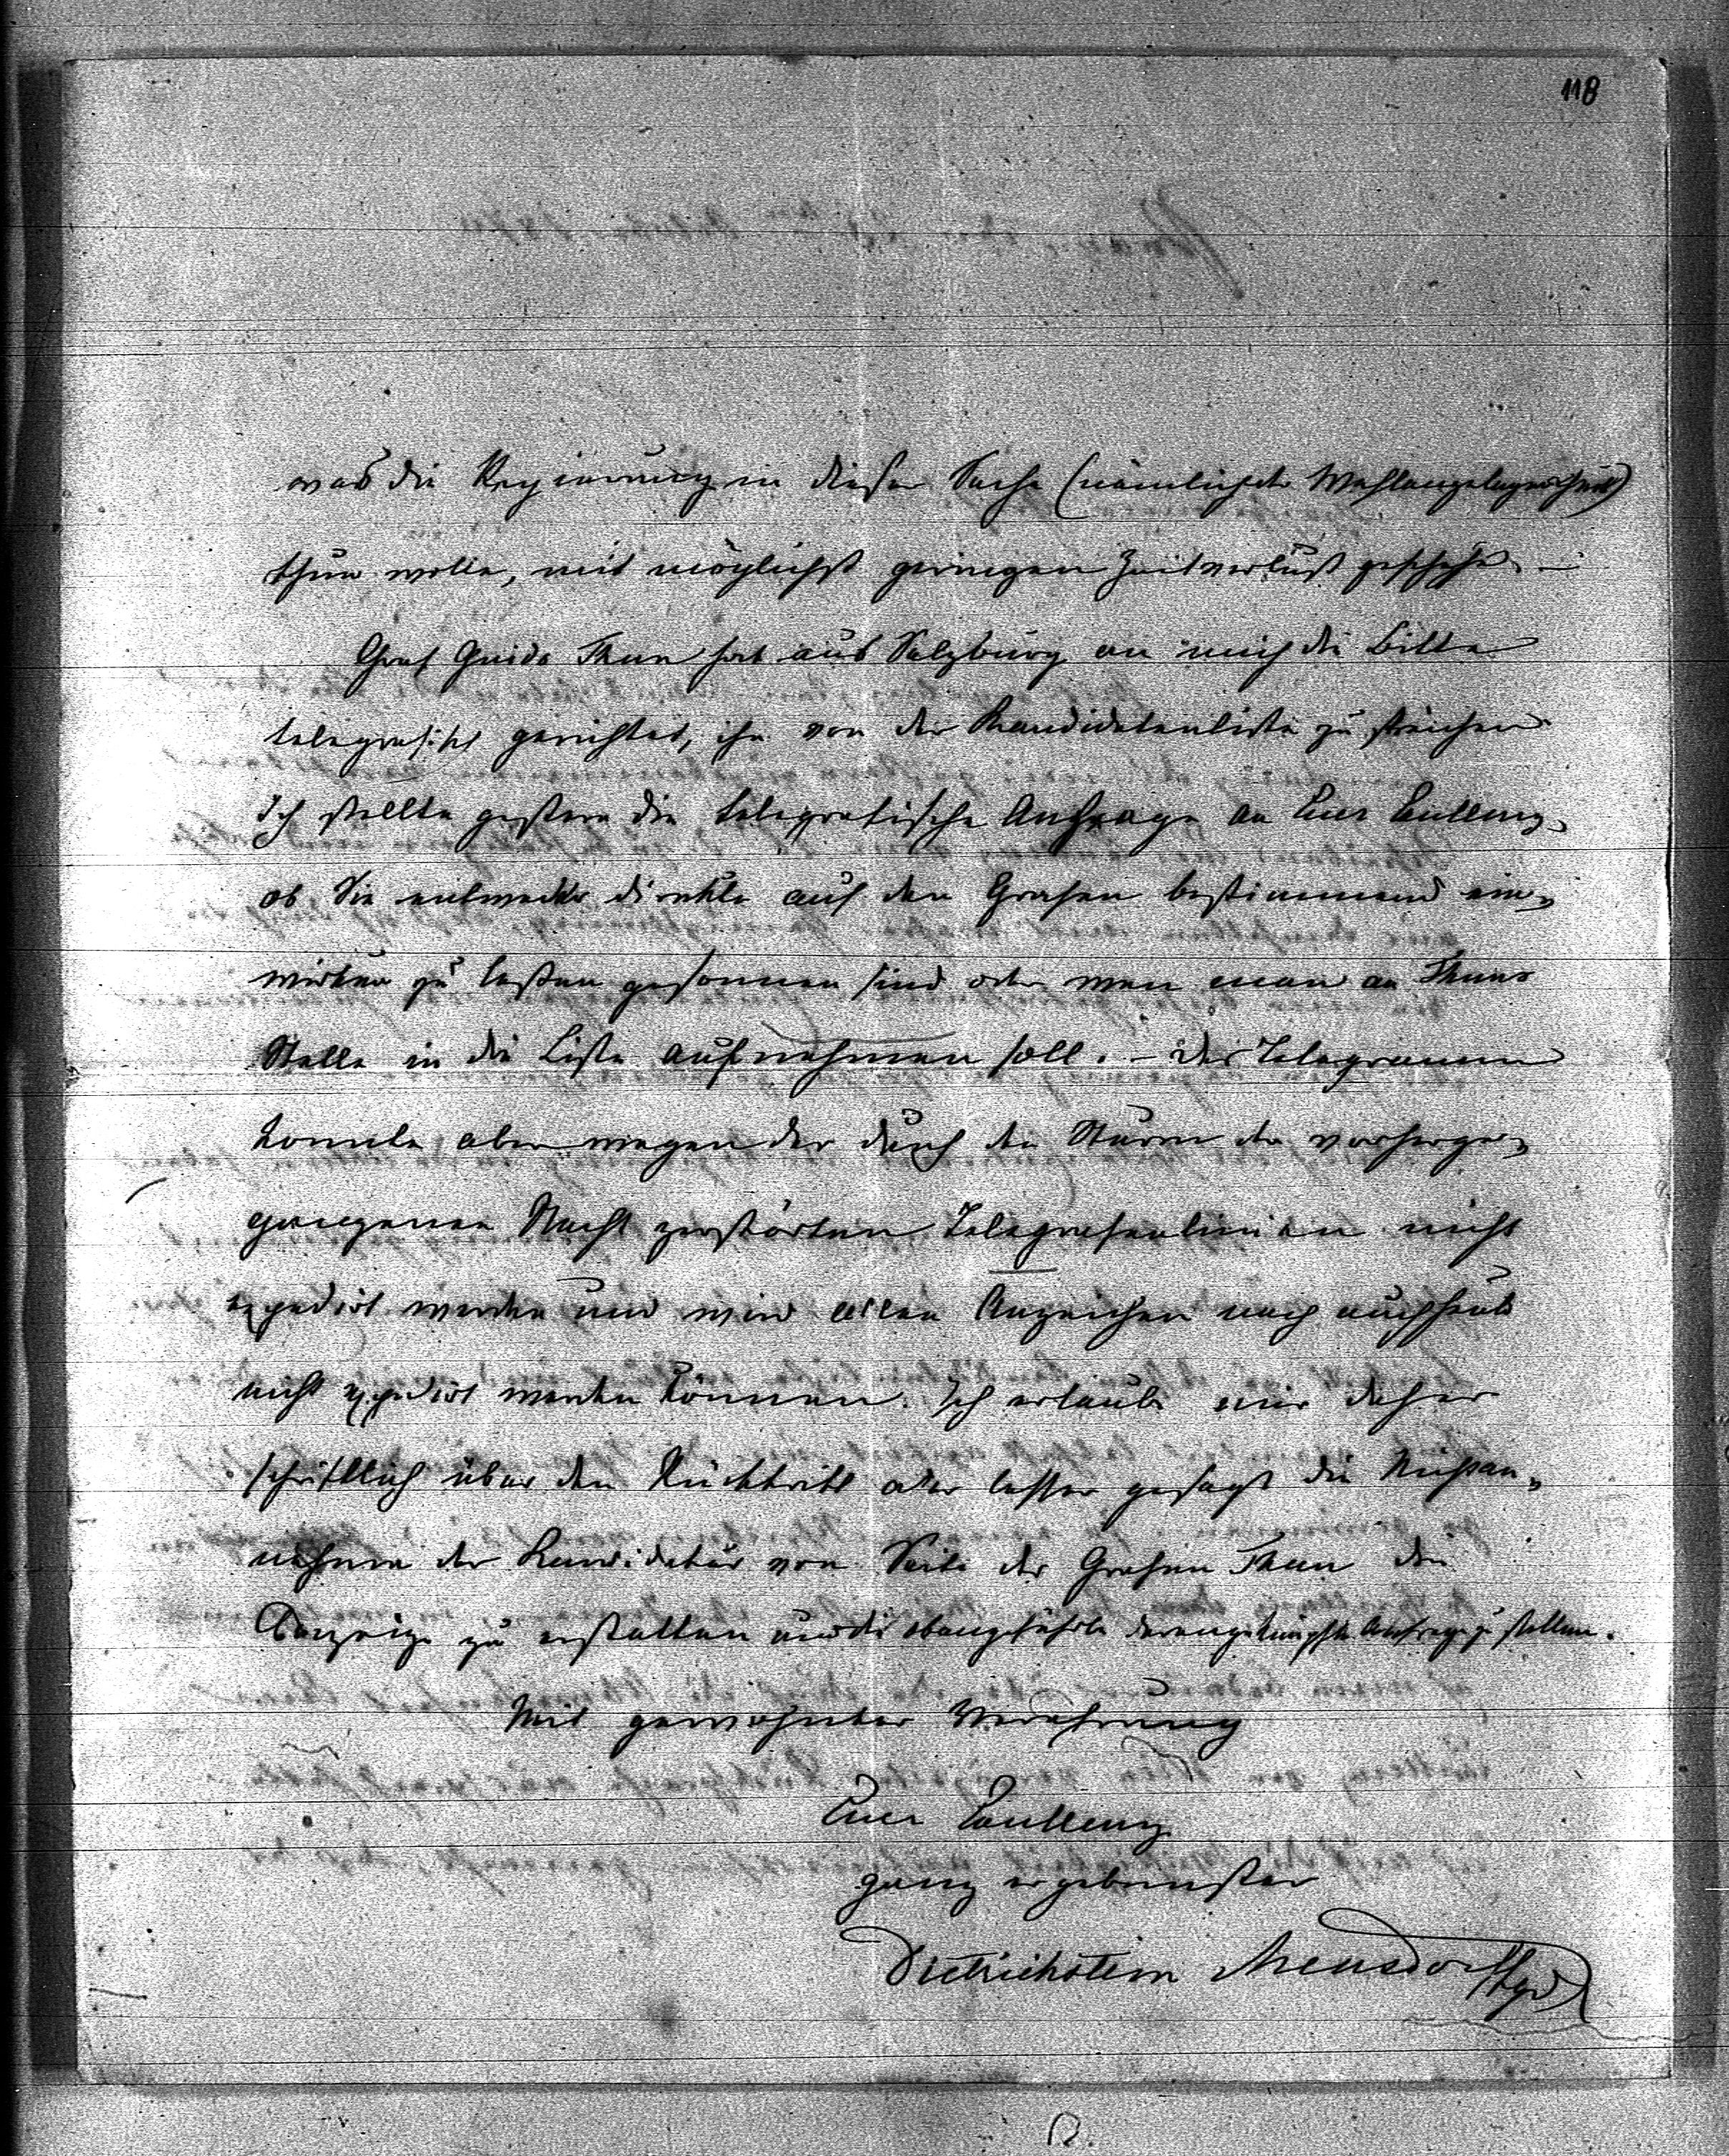 118
was die Regierung in dieser Sache (nämlich der Wahlangelegenheit)
thun wolle, mit möglichst geringen Zeitverlust geschehe. –
Graf Guido Thun hat aus Salzburg an mich die Bitte
telegrafisch gerichtet, ihn von der Kandidatenliste zu streichen
Ich stellte gestern die telegrafische Anfrage an Euer Exzellenz,
ob Sie entweder direkte auf den Grafen bestimmend ein„
wirken zu laßen gesonnen sind oder wen man an Thuns
Stelle in die Liste aufnehmen soll. – Das Telegramm
konnte aber wegen der durch den Sturm der vorherge„
gangenen Nacht zerstörten Telegrafenlinien nicht
expedirt werden und wird allen Anzeichen nach auch heute
nicht expedirt werden können. Ich erlaube mir daher
schriftlich über den Rücktritt oder besser gesagt die Nichtan„
nahme der Kandidatur von Seite des Grafen Thun die
Anzeige zu erstatten und die obangeführte darangeknüpfte Anfrage zu stellen.
Mit gewohnter Verehrung
Euer Exzellenz
ganz ergebenster
Dietrichstein Mensdorff